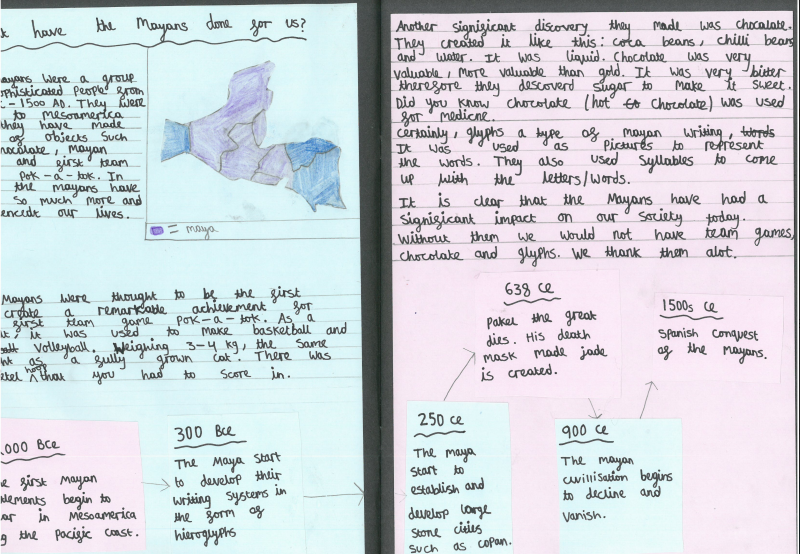 t have the Mayans done for us?
ayans were a group
phisticated people from
- 1500 AD. They were
to Mesoamerica
they have made
of objects such
hocolate, mayan
and first team
POK-a-tok. In
the mayans have
so much more and
encedt our lives.
= maya
Mayans were thought to be the first
create a remarkable achievement for
first team game POK-a-tok. As a
t, it was used to make basketball and
volleyball. Weighing 3-4 kg, the same
ht as a fully grown cat. There was
etel hoop that you had to score in.
.000 BCE
e first Mayan
tlements begin to
ar in Mesoamerica
g the Pacific coast.
300 BCE
The Maya start
to develop their
writing systems in
the form of
hieroglyphs
Another significant discovery they made was chocalate.
They created it like this: coca beans, chilli beans
and water. It was liquid. Chocolate was very
valuable, more valuable than gold. It was very bitter
therefore they descoverd sugar to make it sweet.
Did you know chocolate (hot chocolate) was used
for medicne.
Certainly, glyphs a type of mayan writing, words
It was used as pictures to represent
the words. They also used syllables to come
up with the letters/words.
It is clear that the Mayans have had a
significant impact on our society today.
Without them we would not have team games,
chocolate and glyphs. We thank them alot.
638 CE
Pakel the great
dies. His death
mask made jade
is created.
1500s CE
Spanish conquest
of the Mayans.
250 CE
The maya
start to
establish and
develop large
stone cities
such as copan.
900 CE
The mayan
civilisation begins
to decline and
vanish.